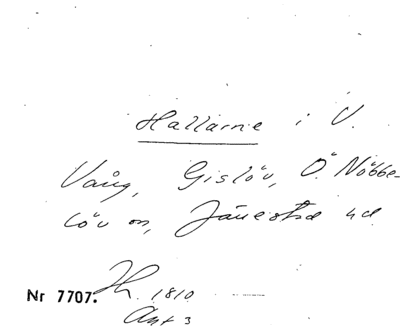 Hallarne i V.
Vång, Gislöv, Ö. Nöbbe-
löv m, Järestad hd
Nr 7707. Jh. 1810
Akt 3